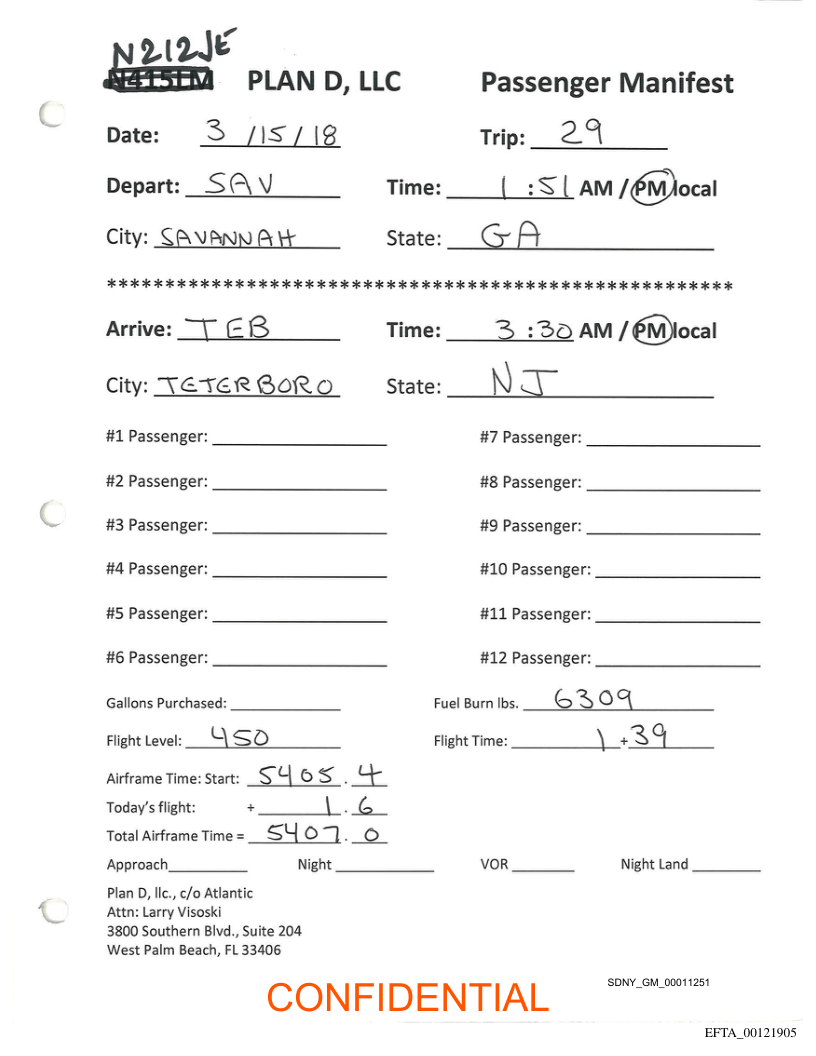 N212JE
N415LM PLAN D, LLC Passenger Manifest
Date: 3 /15/ 18 Trip: 29
Depart: SAV Time: 1 :51 AM / PM local
City: SAVANNAH State: GA
******************************************************
Arrive: TEB Time: 3 :30 AM / PM local
City: TETERBORO State: NJ
#1 Passenger: #7 Passenger:
#2 Passenger: #8 Passenger:
#3 Passenger: #9 Passenger:
#4 Passenger: #10 Passenger:
#5 Passenger: #11 Passenger:
#6 Passenger: #12 Passenger:
Gallons Purchased: Fuel Burn lbs. 6309
Flight Level: 450 Flight Time: 1 + 39
Airframe Time: Start: 5405 . 4
Today's flight: + 1 . 6
Total Airframe Time = 5407 . 0
Approach Night VOR Night Land
Plan D, llc., c/o Atlantic
Attn: Larry Visoski
3800 Southern Blvd., Suite 204
West Palm Beach, FL 33406
SDNY_GM_00011251
CONFIDENTIAL
EFTA_00121905